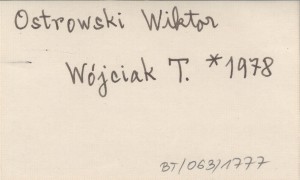 Ostrowski Wiktor
Wójciak T. *1978
BT/063/1777